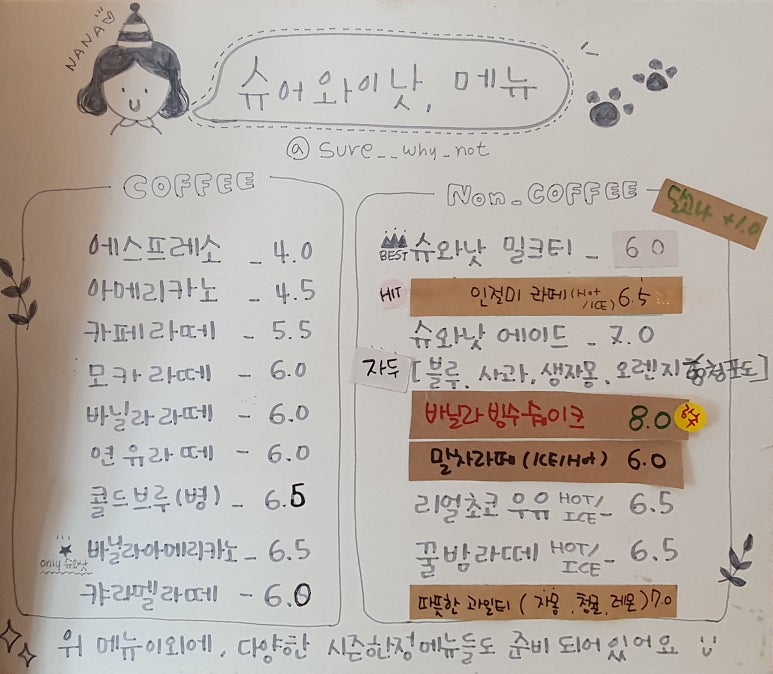 NANA
슈어와이낫, 메뉴
@ sure__why_not
COFFEE
에스프레소 - 4.0
아메리카노 - 4.5
카페라떼 - 5.5
모카라떼 - 6.0
바닐라라떼 - 6.0
연유라떼 - 6.0
콜드브루(병) - 6.5
only 슈와낫
바닐라아메리카노 - 6.5
캬라멜라떼 - 6.0
Non-COFFEE
달고나 +1.0
BEST 슈와낫 밀크티 - 6 0
HIT 인절미 라떼(Hot/ICE) 6.5
슈와낫 에이드 - 7.0
자두 [블루, 사과, 생자몽, 오렌지, 청포도]
바닐라빙수쉐이크 8.0
말차라떼(ICE/Hot) 6.0
리얼초코우유 HOT/ICE - 6.5
꿀밤라떼 HOT/ICE - 6.5
따뜻한 과일티 (자몽, 청귤, 레몬) 7.0
위 메뉴이외에, 다양한 시즌한정메뉴들도 준비 되어있어요